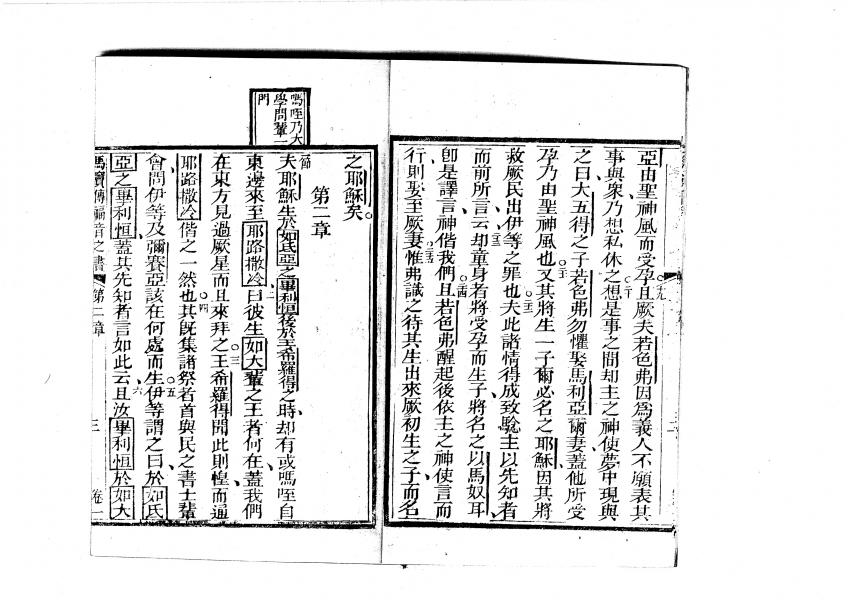 亞由聖神風而受孕且厥夫若色弗因爲義人不願表其
事與衆乃想私休之想是事之間却主之神使夢中現與
之曰大五得之子若色弗勿懼娶馬利亞爾妻蓋他所受
孕乃由聖神風也又其將生一子爾必名之耶穌因其將
救厥民出伊等之罪也夫此諸情得成致驗主以先知者
而前所言云却童身者將受孕而生子將名之以馬奴耳
卽是譯言神偕我們且若色弗醒起後依主之神使言而
行則娶至厥妻惟弗識之待其生出來厥初生之子而名
之耶穌矣
第二章
嗎咥乃大
學問輩一
門
節夫耶穌生於如氐亞之畢利恒後於王希羅得之時却有或嗎咥自
東邊來至耶路撒冷曰彼生如大輩之王者何在蓋我們
在東方見過厥星而且來拜之王希羅得聞此則惶而通
耶路撒冷偕之一然也其旣集諸祭者首與民之書士輩
會問伊等及彌賽亞該在何處而生伊等謂之曰於如氐
亞之畢利恒蓋其先知者言如此云且汝畢利恒於如大
馬竇傳福音之書 第二章 三 卷一